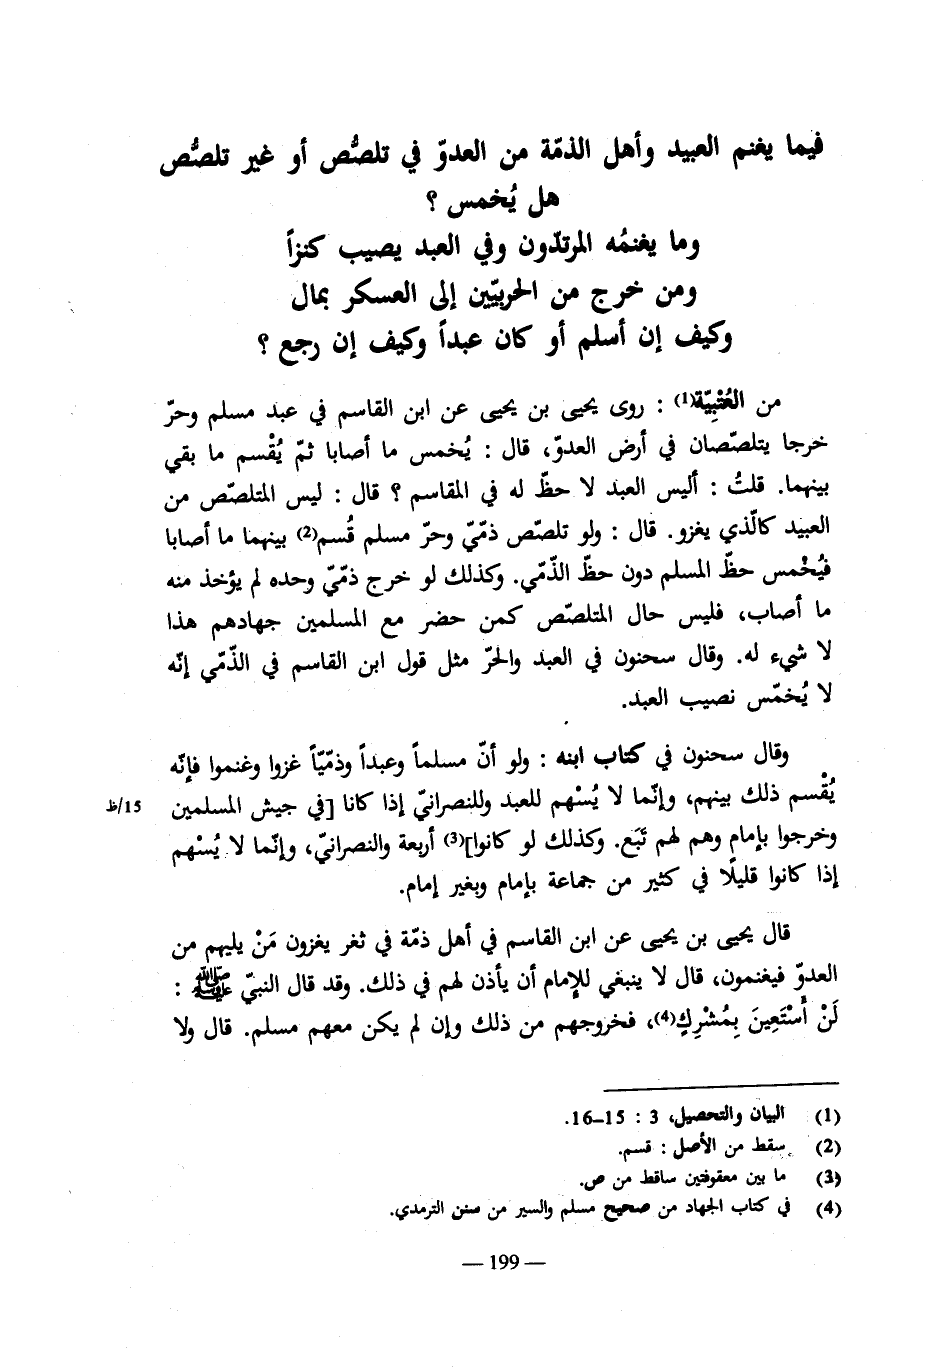 فيما يغنم العبيد وأهل الذمّة من العدوّ في تلصُّص أو غير تلصُّص
هل يُخمس ؟
وما يغنمُه المرتدّون وفي العبد يصيب كنزاً
ومن خرج من الحربيّين إلى العسكر بمال
وكيف إن أسلم أو كان عبداً وكيف إن رجع ؟
من العُتْبِيّة(1) : روى يحيى بن يحيى عن ابن القاسم في عبد مسلم وحرّ
خرجا يتلصّصان في أرض العدوّ، قال : يُخمس ما أصابا ثمّ يُقْسم ما بقي
بينهما. قلتُ : أليس العبد لا حظّ له في المقاسم ؟ قال : ليس المتلصّص من
العبيد كالّذي يغزو. قال : ولو تلصّص ذمّيّ وحرّ مسلم قُسم(2) بينهما ما أصابا
فيُخْمس حظّ المسلم دون حظّ الذّمّي. وكذلك لو خرج ذمّيّ وحده لم يؤخذ منه
ما أصاب، فليس حال المتلصّص كمن حضر مع المسلمين جهادهم هذا
لا شيء له. وقال سحنون في العبد والحرّ مثل قول ابن القاسم في الذّمّي إنّه
لا يُخمّس نصيب العبد.
وقال سحنون في كتاب ابنه : ولو أنّ مسلماً وعبداً وذمّيّاً غزوا وغنموا فإنّه
يُقْسم ذلك بينهم، وإنّما لا يُسْهم للعبد وللنصرانيّ إذا كانا [في جيش المسلمين 15/ظ
وخرجوا بإمام وهم لهم تَبَع. وكذلك لو كانوا](3) أربعة والنصرانيّ، وإنّما لا يُسْهم
إذا كانوا قليلًا في كثير من جماعة بإمام وبغير إمام.
قال يحيى بن يحيى عن ابن القاسم في أهل ذمّة في ثغر يغزون مَنْ يليهم من
العدوّ فيغنمون، قال لا ينبغي للإمام أن يأذن لهم في ذلك. وقد قال النبيّ ﷺ :
لَنْ أَسْتَعِينَ بِمُشْرِكٍ(4)، فخروجهم من ذلك وإن لم يكن معهم مسلم. قال ولا
(1) البيان والتحصيل، 3 : 15-16.
(2) سقط من الأصل : قسم.
(3) ما بين معقوفتين ساقط من ص.
(4) في كتاب الجهاد من صحيح مسلم والسير من سنن الترمدي.
— 199 —